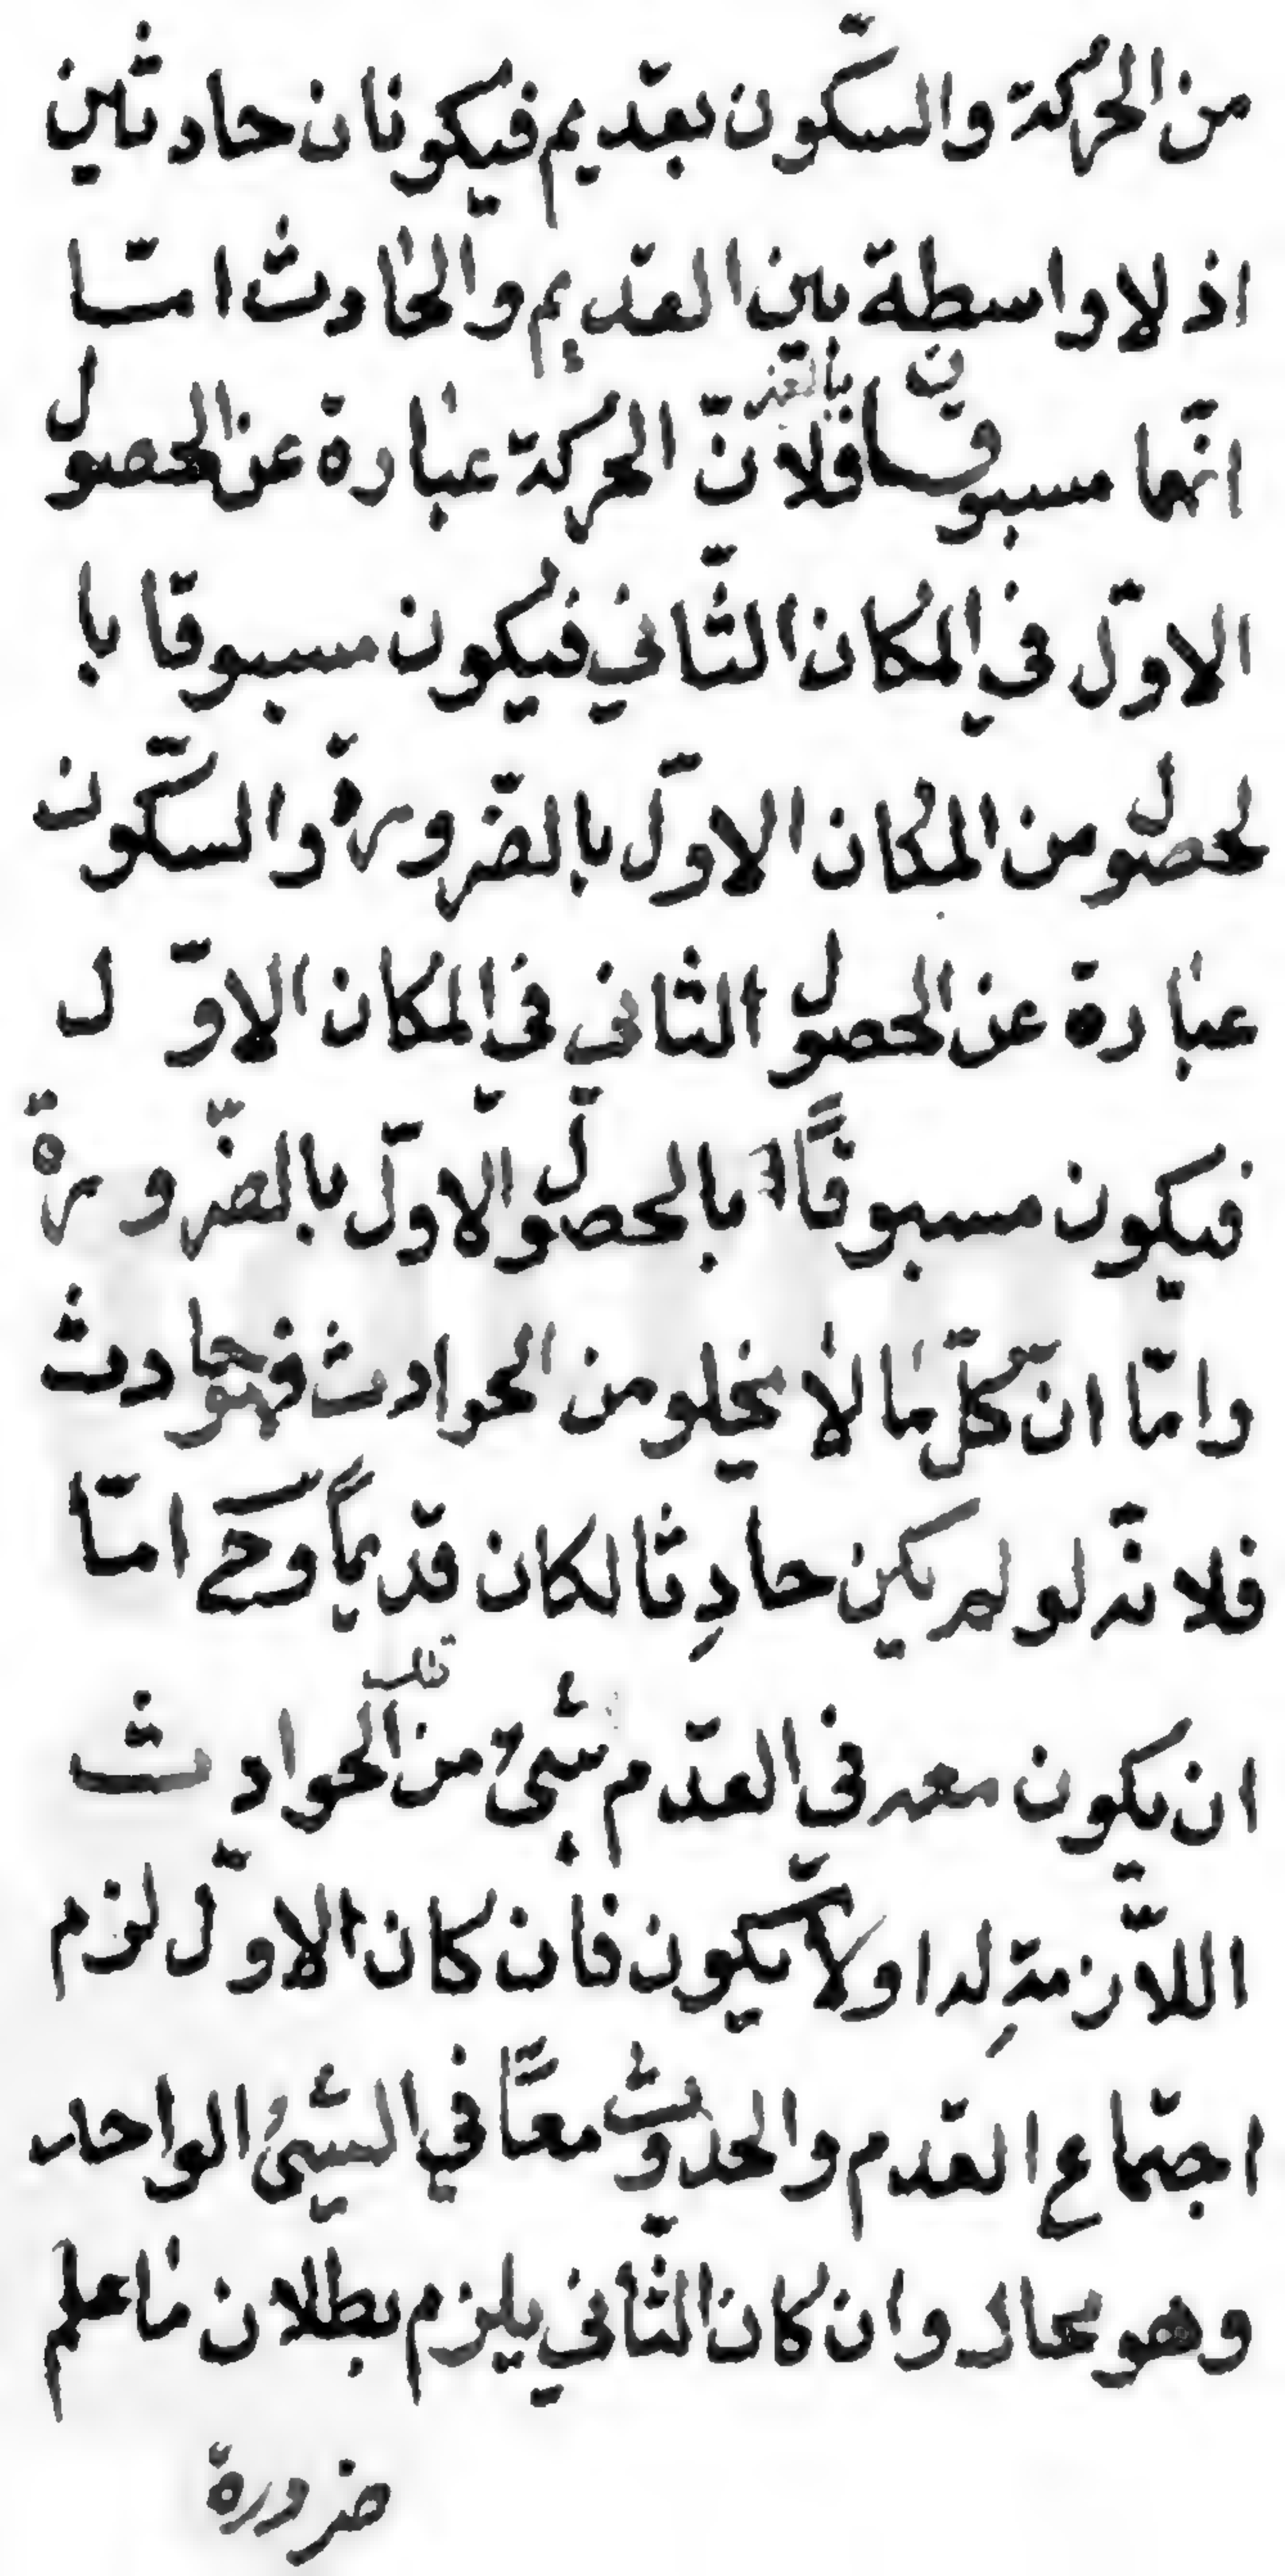 من الحركة والسّكون بقديم فيكونان حادثين
اذ لا واسطة بين القديم والحادث امّا
انّهما مسبوقان بالغير فلانّ الحركة عبارة عن الحصول
الاوّل في المكان الثّاني فيكون مسبوقا با
لحصول من المكان الاوّل بالضّرورة والسّكون
عبارة عن الحصول الثاني في المكان الاوّل
فيكون مسبوقًا بالحصول الاوّل بالضّرورة
وامّا انّ كلّ ما لا يخلو من الحوادث فهو حادث
فلانّه لو لم يكن حادِثا لكان قديمًا وحٓ امّا
ان يكون معه في القدم شيئ من تلك الحوادث
اللاّزمةِ له او لا يكون فان كان الاوّل لزم
اجتماع القدم والحدوث معًا في الشّيئ الواحد
وهو محال وان كان الثّاني يلزم بطلان ما علم
ضرورة